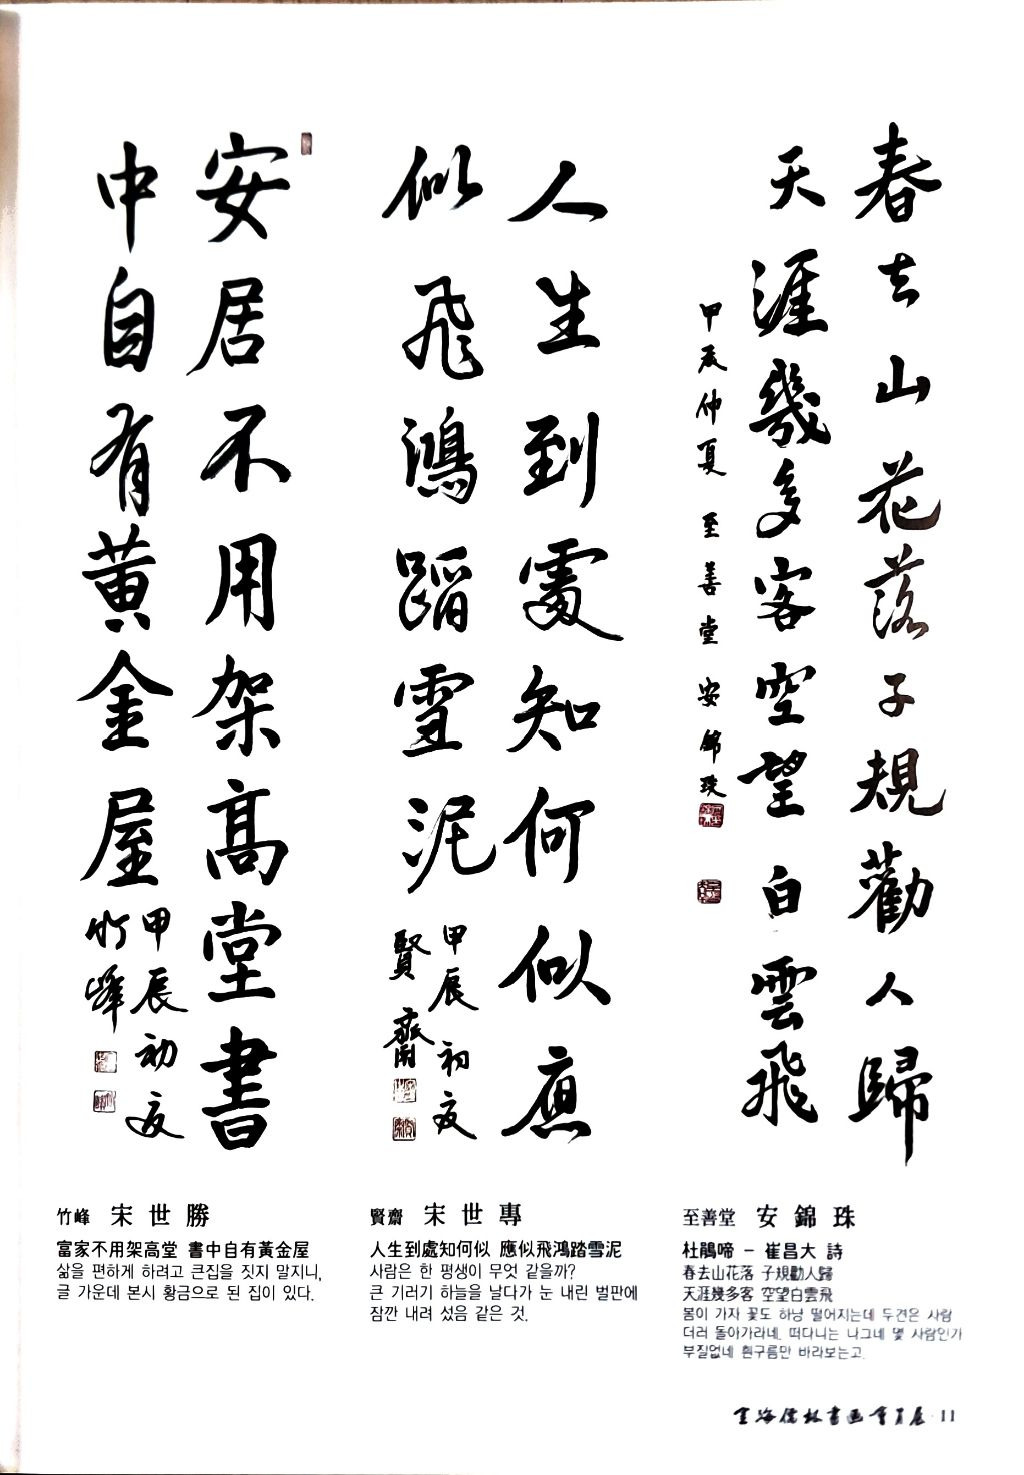 春去山花落子規勸人歸
天涯幾多客空望白雲飛
甲辰仲夏 至善堂 安錦珠
人生到處知何似應
似飛鴻蹈雪泥
甲辰初夏
賢齋
安居不用架高堂書
中自有黃金屋
甲辰初夏
竹峰
竹峰 宋世勝
富家不用架高堂 書中自有黃金屋
삶을 편하게 하려고 큰집을 짓지 말지니,
글 가운데 본시 황금으로 된 집이 있다.
賢齋 宋世專
人生到處知何似 應似飛鴻踏雪泥
사람은 한 평생이 무엇 같을까?
큰 기러기 하늘을 날다가 눈 내린 벌판에
잠깐 내려 섰음 같은 것.
至善堂 安錦珠
杜鵑啼 - 崔昌大 詩
春去山花落 子規勸人歸
天涯幾多客 空望白雲飛
봄이 가자 꽃도 하냥 떨어지는데 두견은 사람
더러 돌아가라네. 떠다니는 나그네 몇 사람인가
부질없네 흰구름만 바라보는고.
海儒林書画會員展 · 11